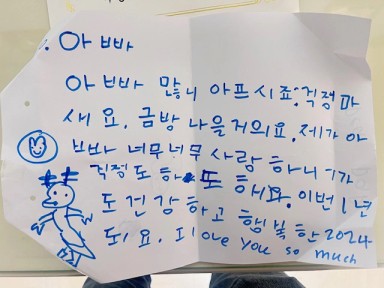 아빠
아빠 많니 아프시죠. 걱정마
새요. 금방 나을거의요. 제가 아
빠 너무너무 사랑하니가
걱정도 하 도 해요. 이번 1년
도 건강하고 행복한 2024
되요. I love you so much